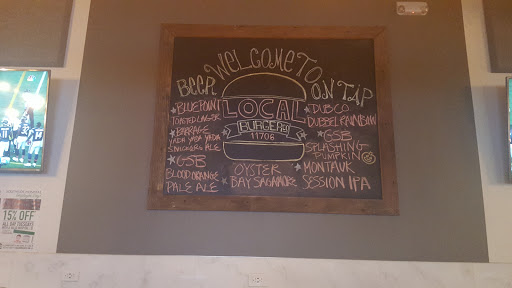 WELCOME TO
BEER ON TAP
LOCAL
BURGER
11706
BLUE POINT
TOASTED LAGER
BARRAGE
YADA YADA YADA
ALE
GSB
BLOOD ORANGE
PALE ALE
OYSTER
BAY SAGAMORE
DUBCO
DUBBEL RAINBOW
GSB
SPLASHING
PUMPKIN
MONTAUK
SESSION IPA
15% OFF